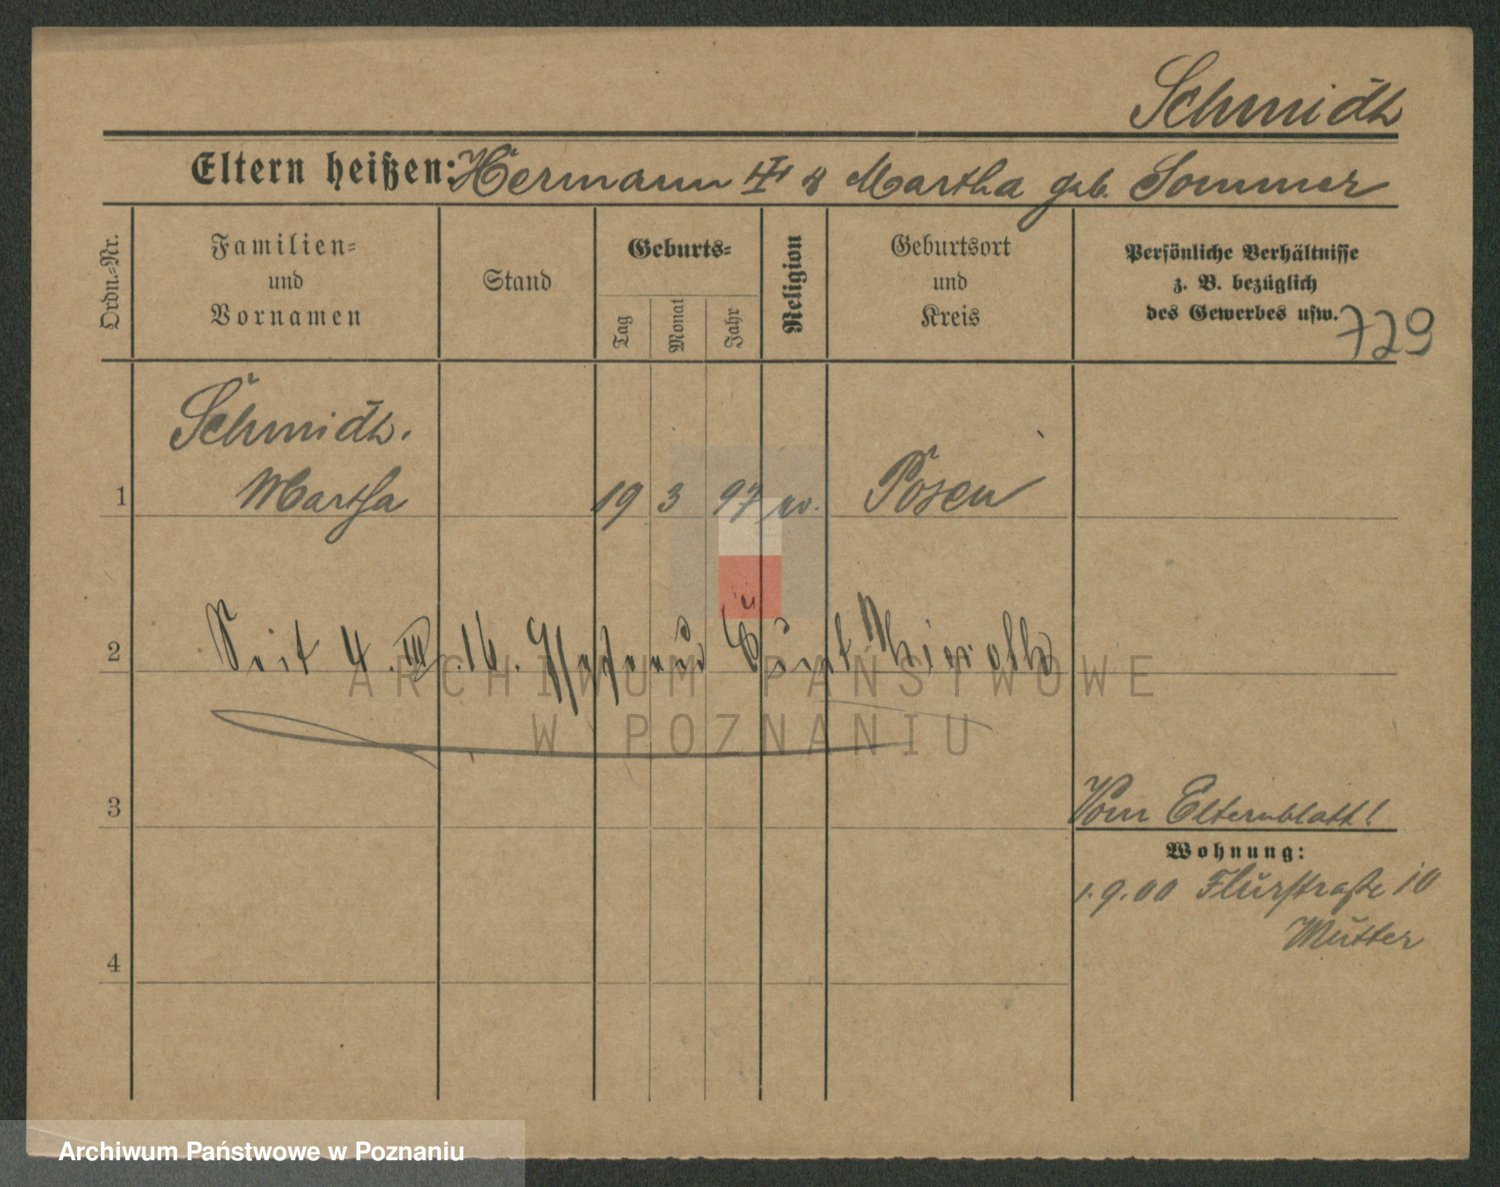 Schmidt
Eltern heißen: Hermann ## & Martha geb. Sommer
Ordn.-Nr.
Familien-
und
Vornamen
Stand
Geburts-
Tag
Monat
Jahr
Religion
Geburtsort
und
Kreis
Persönliche Verhältnisse
z. B. bezüglich
des Gewerbes usw.
729
Schmidt.
1 Martha 19 3 97 ev. Posen
2 Seit 4.III.16. Kurt
ARCHIWUM PAŃSTWOWE
W POZNANIU
3
Vom Elternblatt!
Wohnung:
1.9.00 Flurstraße 10
Mutter
4
Archiwum Państwowe w Poznaniu